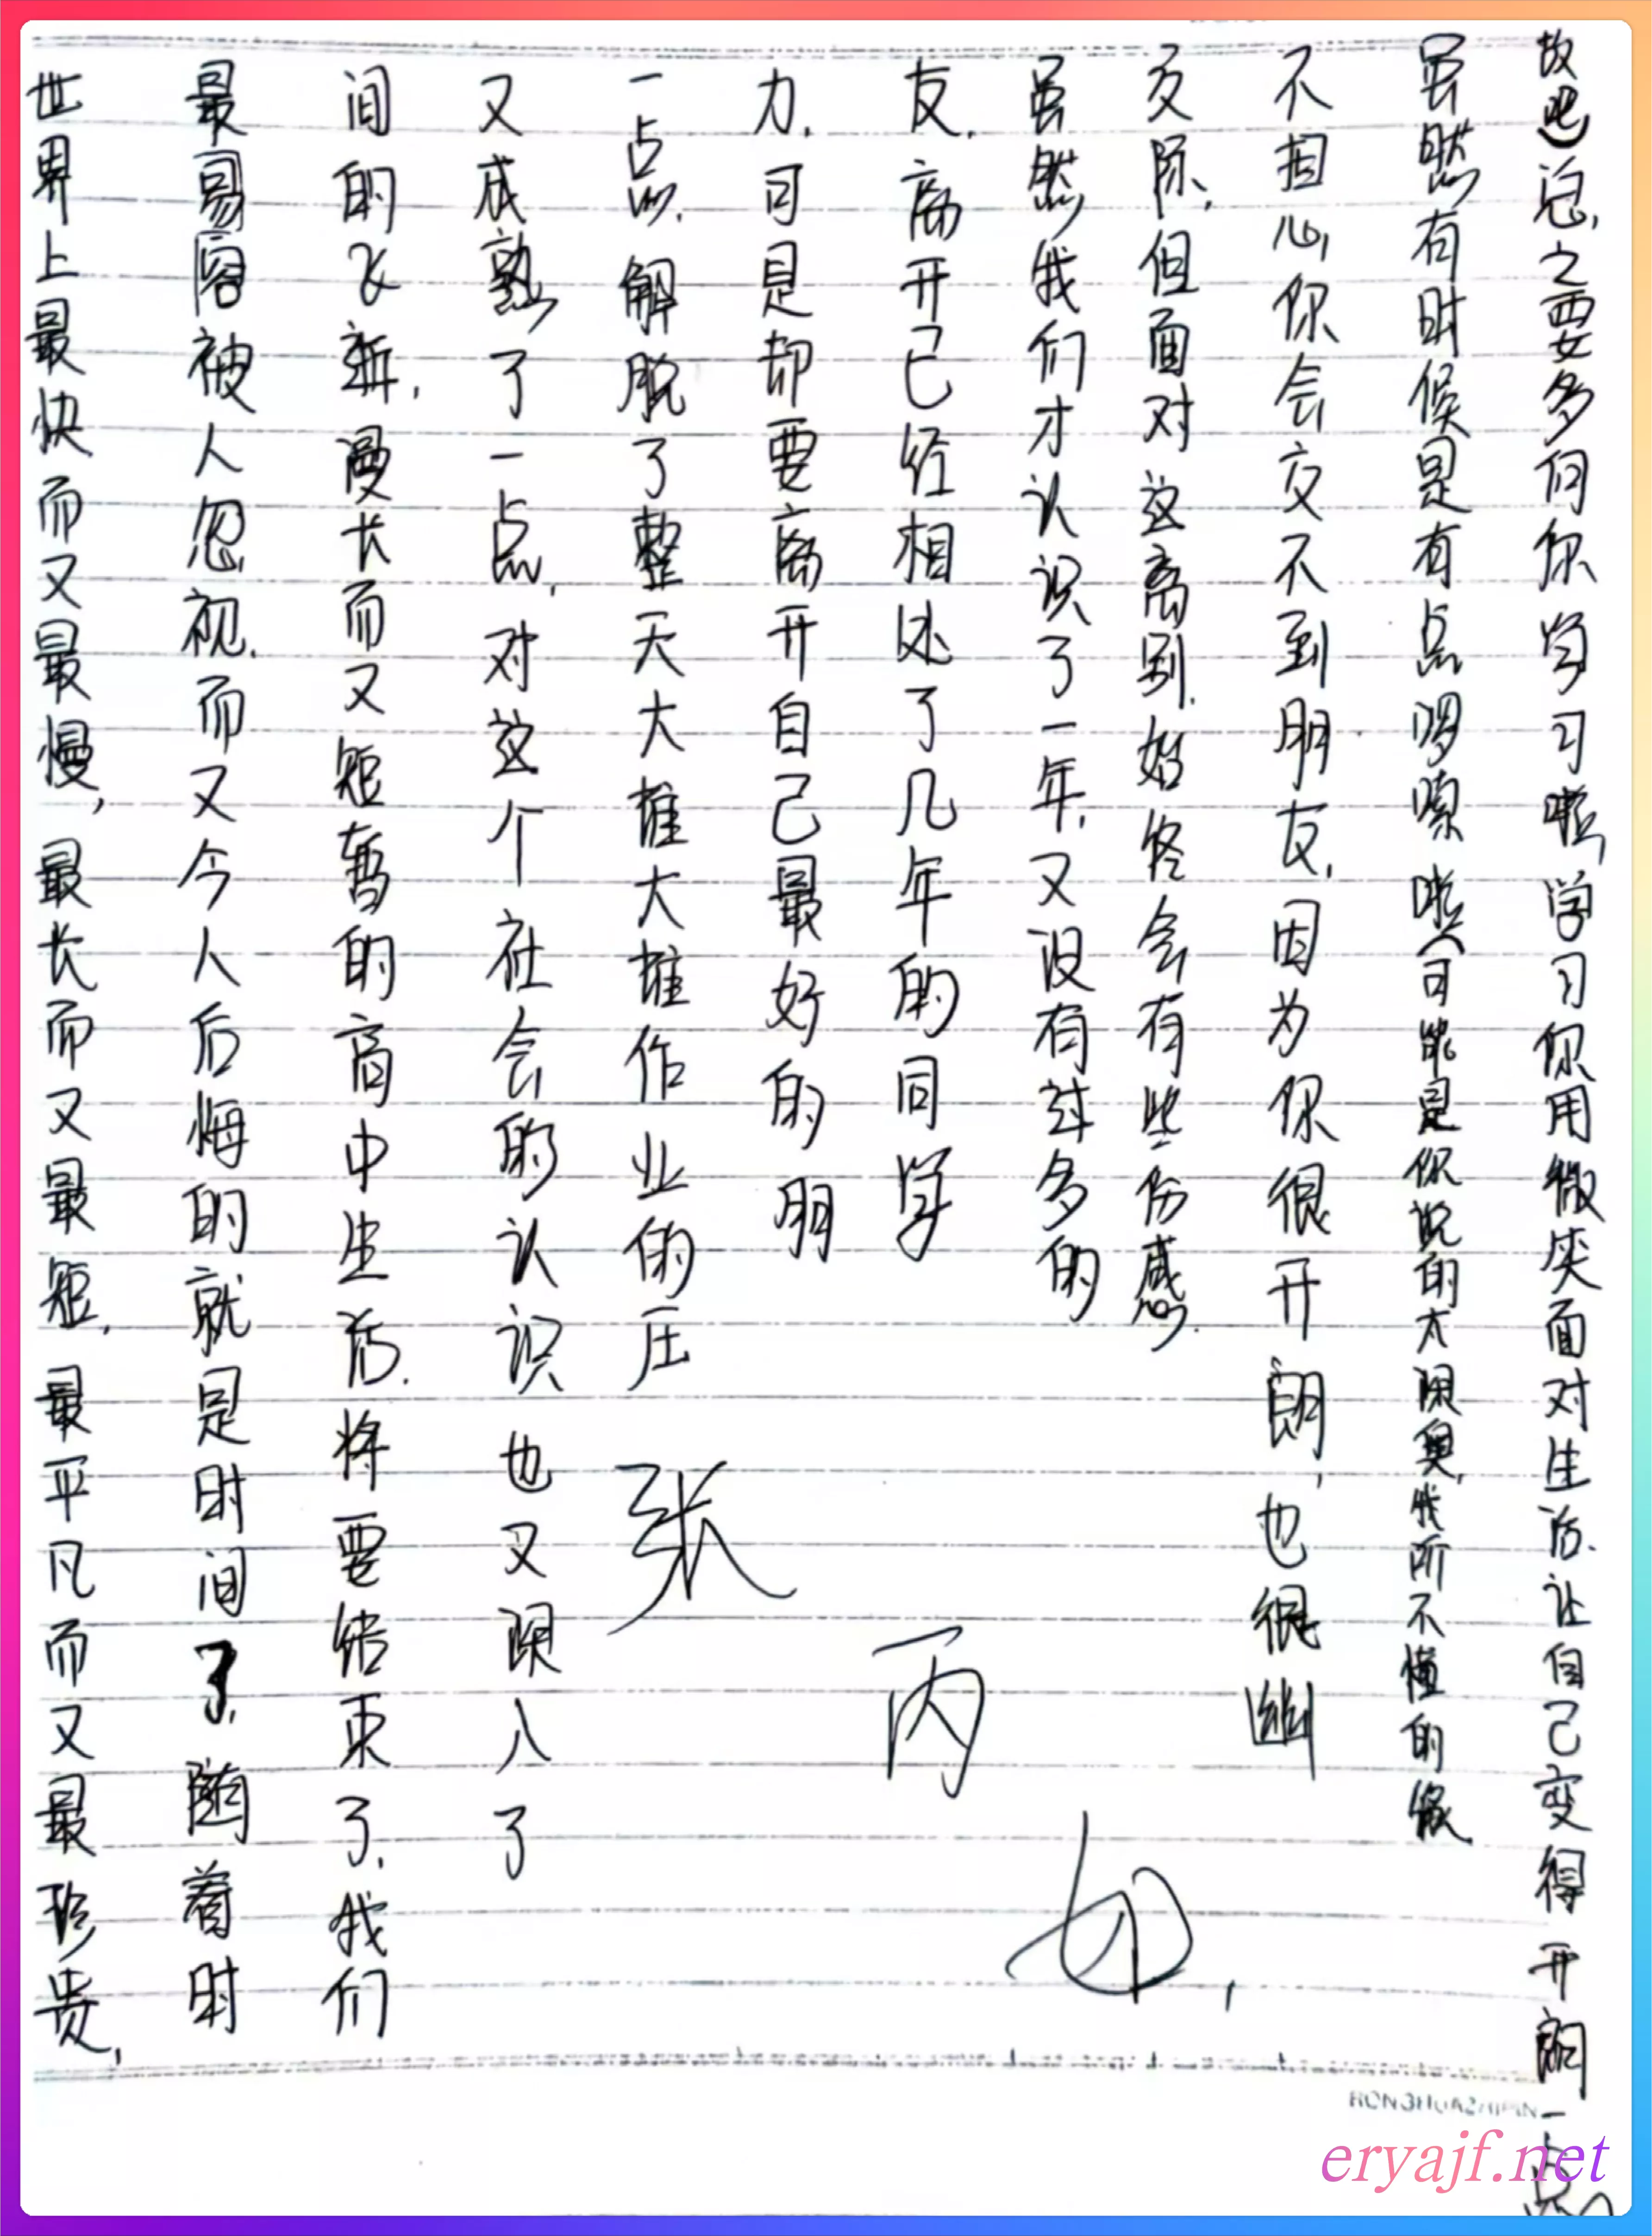 世界上最快而又最慢,最长而又最短,最平凡而又最珍贵,
最易容被人忽视.而又令人后悔的就是时间了,随着时
间的飞逝,漫长而又短暂的高中生活.将要结束了,我们
又成熟了一点,对这个社会的认识也又深入了
一点,解脱了整天大堆大堆作业的压
力,可是却要离开自己最好的朋
友,离开已经相处了几年的同学
虽然我们才认识了一年,又没有过多的
交际,但面对这离别.始终会有些伤感.
不担心你会交不到朋友,因为你很开朗,也很幽
虽然有时候是有点啰嗦啦(可能是你说的太深奥,我所不懂的缘
故吧)总,之要多向你学习啦,学习你用微笑面对生活.让自己变得开朗一点
张丙如,
HONGHUASHIPIN
eryajf.net